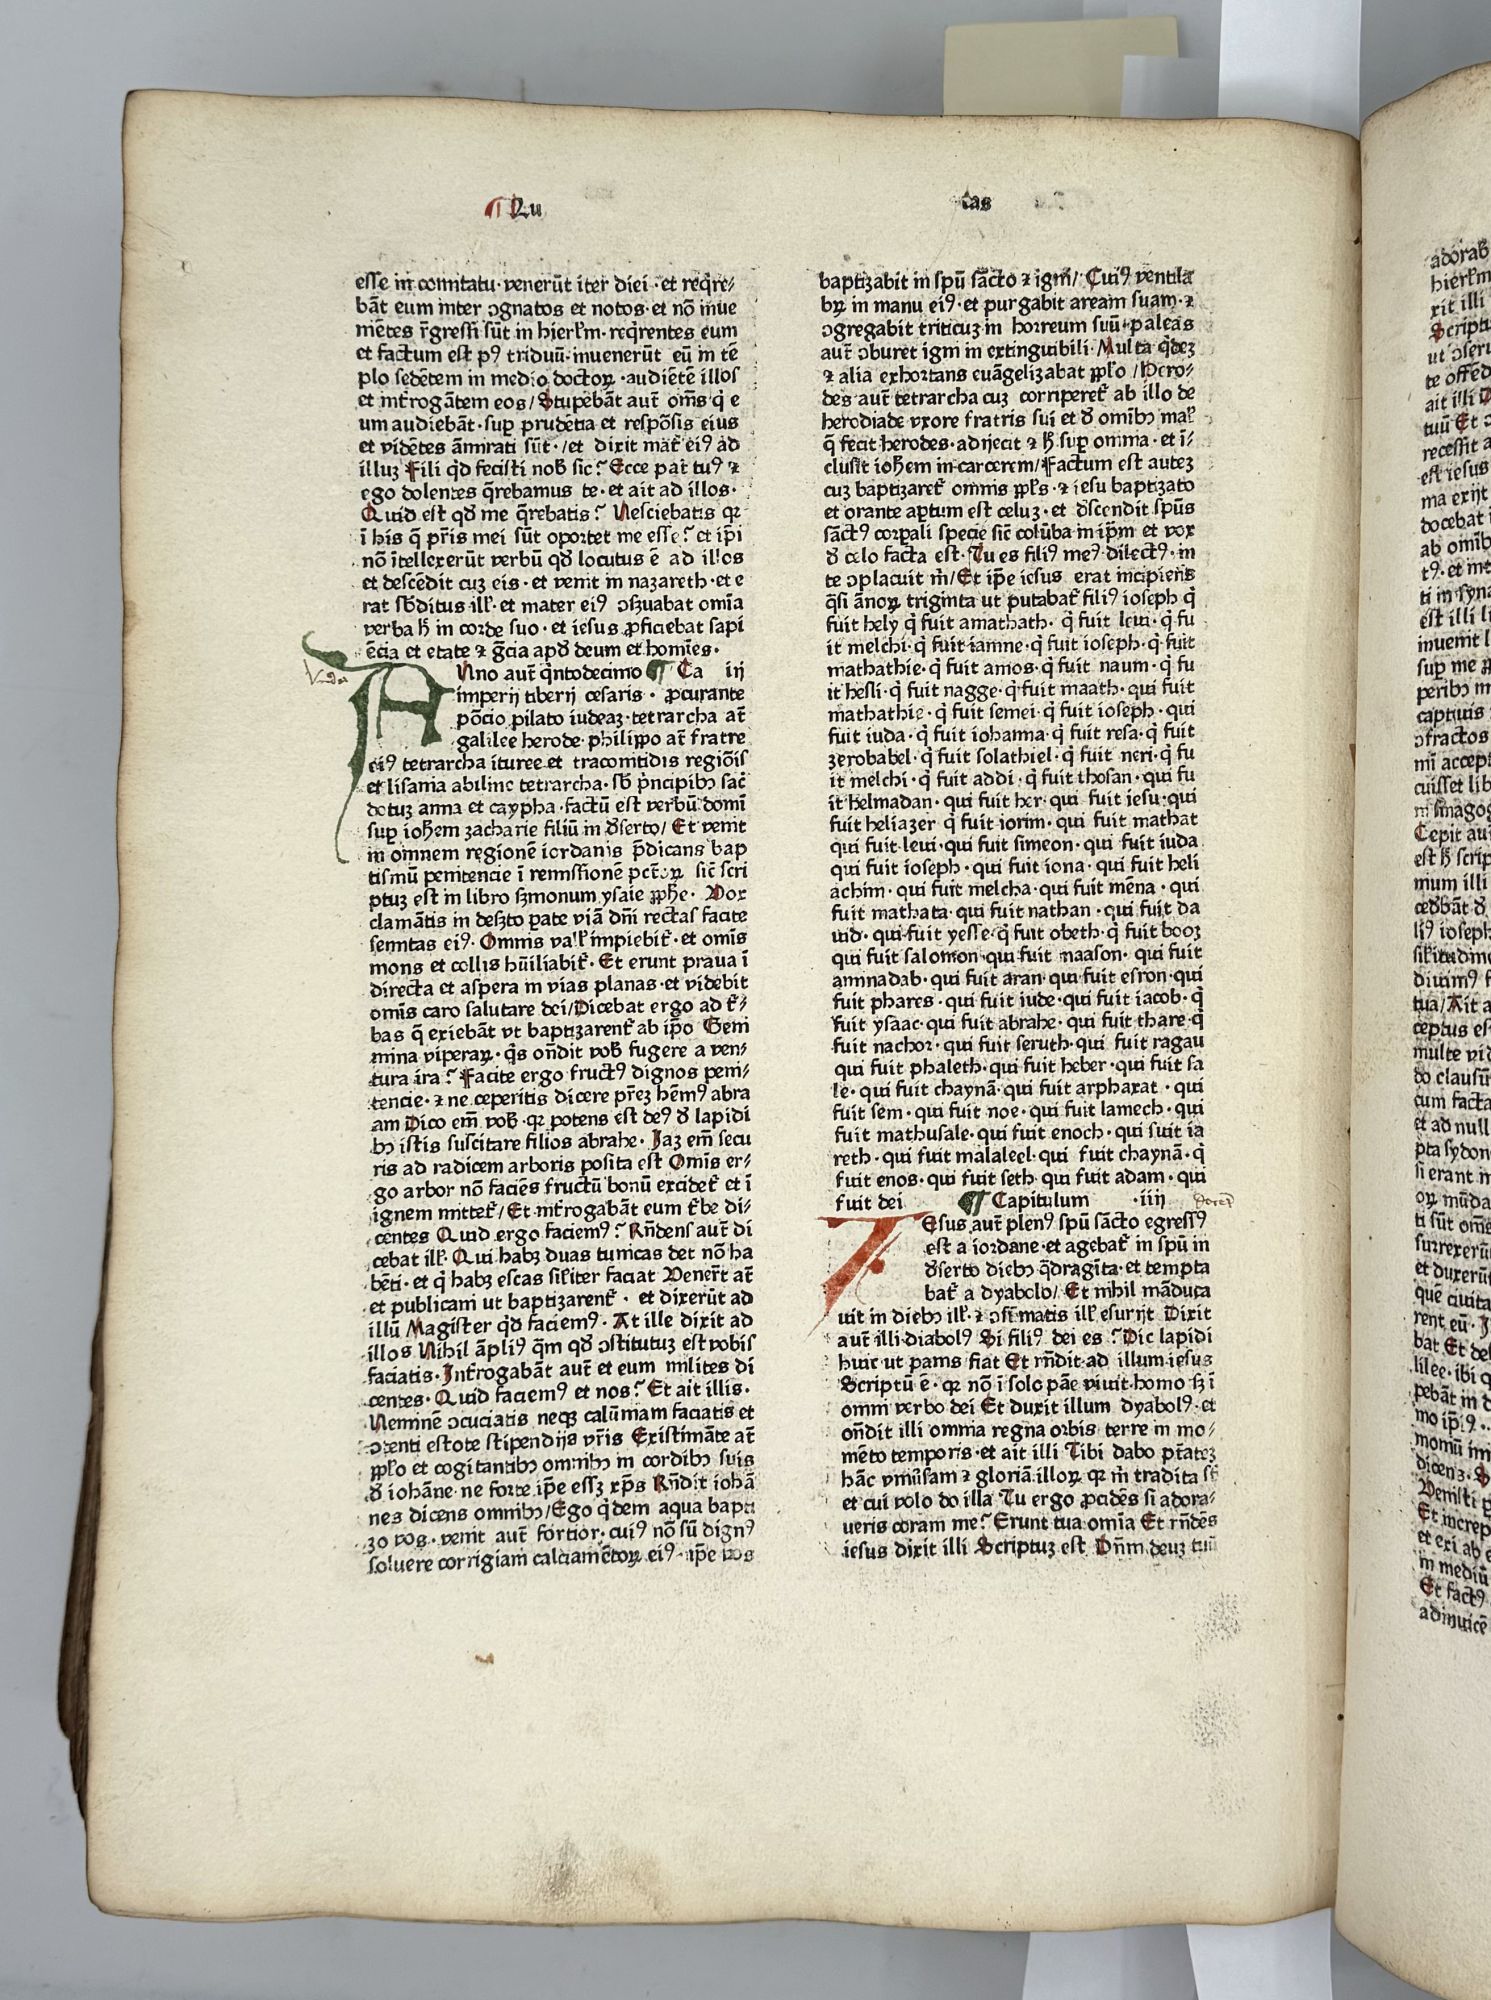 Lu
cas
esse in comitatu· venerūt iter diei ·et req̄re⸗
bāt eum inter ↄgnatos et notos· et nō inue
niētes r̄gressi sūt in hierl̄m· req̄rentes eum
et factum est pꝰ triduū· inuenerūt eū in tē
plo sedētem in medio doctoꝝ ·audiētē illos
et int̄rogātem eos/ Stupebāt aut̄ om̄s q̇ e
um audiebāt· suꝑ prudētia et respōsis eius
et vidētes āmirati sūt· /et dixit mat̄ eiꝰ ad
illuꝫ Fili qd̄ fecisti nob̄ sic? Ecce pat̄ tuꝰ ⁊
ego dolentes q̄rebamus te· et ait ad illos·
Quid est qd̄ me q̄rebatis? Nesciebatis qꝛ
ī his q̄ pr̄is mei sūt oportet me esse? et ip̄i
nō ītellexerūt verbū qd̄ locutus ē ad illos
et descēdit cuꝫ eis· et venit in nazareth· et e
rat sb̄ditus ill̄· et mater eiꝰ ↄsẜuabat om̄ia
verba h̄ in corde suo· et iesus ꝓficiebat sapi
ēcia et etate ⁊ gr̄cia apd̄ deum et homīes·
ANno aut̄ qͥntodecimo ¶ Ca iij
imperij tiberij cesaris· ꝓcurante
pōcio pilato iudeaꝫ· tetrarcha at̄
galilee herode· philippo at̄ fratre
eiꝰ tetrarcha ituree et traconitidis regiōis
et lisania abiline tetrarcha· sb̄ pͥncipibꝫ sac̄
dotuꝫ anna et caypha· factū est verbū domī
suꝑ ioh̄em zacharie filiū in d̄serto/ Et venit
in omnem regionē iordanis p̄dicans bap
tismū penitencie ī remissionē pctōꝝ sic̄ scri
ptuꝫ est in libro ẜmonum ysaie ꝓph̄e· Vox
clamātis in desẜto parate viā dn̄i rectas facite
semitas eiꝰ· Omnis vall̄ impiebit̄· et om̄is
mons et collis hūiliabit̄· Et erunt praua ī
directa et aspera in vias planas· et videbit
om̄is caro salutare dei/ Dicebat ergo ad t̄⸗
bas q̄ exiebāt vt baptizarent̄ ab ip̄o Geni
mina viperaꝝ· qͥs on̄dit vob̄ fugere a ven⸗
tura ira? Facite ergo fructꝰ dignos peni⸗
tencie· ⁊ ne ceperitis dicere pr̄eꝫ hēmꝰ abra
am Dico em̄ vob̄· qꝛ potens est deꝰ d̄ lapidi
bꝫ istis suscitare filios abrahe· Iaꝫ em̄ secu
ris ad radicem arboris posita est Om̄is er⸗
go arbor nō faciēs fructū bonū excidet̄ et ī
ignem mittet̄/ Et int̄rogabāt eum t̄be di⸗
centes Quid ergo faciemꝰ? Rn̄dens aut̄ di
cebat ill̄· Qui habꝫ duas tunicas det nō ha
bēti· et q̇ habꝫ escas sil̄iter faciat Venerūt at̄
et publicani ut baptizarent̄ · et dixerūt ad
illū Magister qd̄ faciemꝰ· At ille dixit ad
illos Nihil āpliꝰ qm̄ qd̄ ↄstitutuꝫ est vobis
faciatis· Int̄rogabāt aut̄ et eum milites di
centes· Quid faciemꝰ et nos? Et ait illis·
Neminē ↄcuciatis neqꝫ calūniam faciatis et
ↄtenti estote stipendijs vr̄is Existimāte at̄
ppl̄o et cogitantibꝫ omnibꝫ in cordibꝫ suis
d̄ iohāne· ne forte ip̄e essꝫ xp̄s Rn̄dit iohā
nes dicens omnibꝫ/ Ego qͥdem aqua bapti
zo vos· venit aut̄ fortior· cuiꝰ nō sū dignꝰ
soluere corrigiam calciamētoꝝ eiꝰ· ip̄e vos
baptizabit in spū sācto ⁊ igni/ Cuiꝰ ventila
bꝝ in manu eiꝰ· et purgabit aream suam· ⁊
ↄgregabit triticuꝫ in horreum suū· paleas
aut̄ ↄburet igni in extinguibili Multa qͥdeꝫ
⁊ alia exhortans euāgelizabat ppl̄o /Hero⸗
des aut̄ tetrarcha cuꝫ corriperet̄ ab illo de
herodiade vxore fratris sui et d̄ omībꝫ mal̄
q̄ fecit herodes· adijecit ⁊ h̄ suꝑ omnia· et ī⸗
clusit ioh̄em in carcerem/ Factum est auteꝫ
cuꝫ baptizaret̄ omnis ppl̄s· ⁊ iesu baptizato
et orante aꝑtum est celuꝫ· et d̄scendit spūs
sāctꝰ corꝑali specie sic̄ colūba in ip̄m et vox
d̄ celo facta est· Tu es filiꝰ meꝰ dilectꝰ· in
te ↄplacuit m̄/ Et ip̄e iesus erat incipiens
qͣsi ānoꝝ triginta ut putabat̄ filiꝰ ioseph q̇
fuit hely q̇ fuit amathath· q̇ fuit leui· q̇ fu
it melchi· q̇ fuit iamne· q̇ fuit ioseph· q̇ fuit
mathathie· q̇ fuit amos· q̇ fuit naum· q̇ fu
it hesli· q̇ fuit nagge· q̇ fuit maath· qui fuit
mathathie· q̇ fuit semei· q̇ fuit ioseph· qui
fuit iuda· q̇ fuit iohanna· q̇ fuit resa· q̇ fuit
zerobabel· q̇ fuit solathiel· q̇ fuit neri· q̇ fu
it melchi· q̇ fuit addi· q̇ fuit thosan· qui fu
it helmadan· qui fuit her· qui fuit iesu· qui
fuit heliazer q̇ fuit iorim· qui fuit mathat
qui fuit leui· qui fuit simeon· qui fuit iuda
qui fuit ioseph· qui fuit iona· qui fuit heli
achim· qui fuit melcha· qui fuit mēna· qui
fuit mathata· qui fuit nathan· qui fuit da
uid· qui fuit yesse· q̇ fuit obeth· q̇ fuit booz
qui fuit salomon· qui fuit naason· qui fuit
aminadab· qui fuit aran· qui fuit esron· qui
fuit phares· qui fuit iude· qui fuit iacob· q̇
fuit ysaac· qui fuit abrahe· qui fuit thare· q̇
fuit nachor· qui fuit seruth· qui fuit ragau
qui fuit phaleth· qui fuit heber· qui fuit sa
le· qui fuit chaynā· qui fuit arpharat· qui
fuit sem· qui fuit noe· qui fuit lamech· qui
fuit mathusale· qui fuit enoch· qui fuit ia
reth· qui fuit malaleel· qui fuit chaynā· q̇
fuit enos· qui fuit seth· qui fuit adam· qui
fuit dei ¶ Capitulum ·iiij
IEsus aut̄ plenꝰ spū sācto egressꝰ
est a iordane· et agebat̄ in spū in
d̄serto diebꝫ qͣdragīta· et tempta
bat̄ a dyabolo/ Et nihil māduca
uit in diebꝫ ill̄· ⁊ ↄsūmatis ill̄ esurijt Dixit
aut̄ illi diabolꝰ Si filiꝰ dei es? Dic lapidi
huic ut panis fiat Et rn̄dit ad illum iesus
Scriptū ē· qꝛ nō ī solo pāe viuit homo sꝫ ī
omni verbo dei Et duxit illum dyabolꝰ· et
on̄dit illi omnia regna orbis terre in mo⸗
mēto temporis· et ait illi Tibi dabo pt̄ateꝫ
hāc vniūsam ⁊ gloriā illoꝝ qꝛ m̄ tradita st̄
et cui volo do illa Tu ergo ꝓcidēs si adora⸗
ueris coram me? Erunt tua om̄ia Et rn̄dēs
iesus dixit illi Scriptuꝫ est Dn̄m deuꝫ tuū
adorab̄
hierl̄m
xit illi
Scriptu
te offēd
ait illi
tuū Et
recessit a
est iesus
ma exijt
docebat
ab omīb
est illi
inuenit
captiuis
mi accep
cuisset lib
in sinagog
Cepit
est h̄ scrip
mum illi
liꝰ ioseph
tua/ Ait a
ceptus es
multe
do clausū
cum facta
et ad null
pta sydon
si erant
ti sūt om̄
surrexerū
et duxerūt
quē ciuita
rent eū·
bat Et
lilee· ibi
pebāt in
mo
dicens·
Venisti
Et increp
et exi ab
in mediū
Et factꝰ
adinuicē